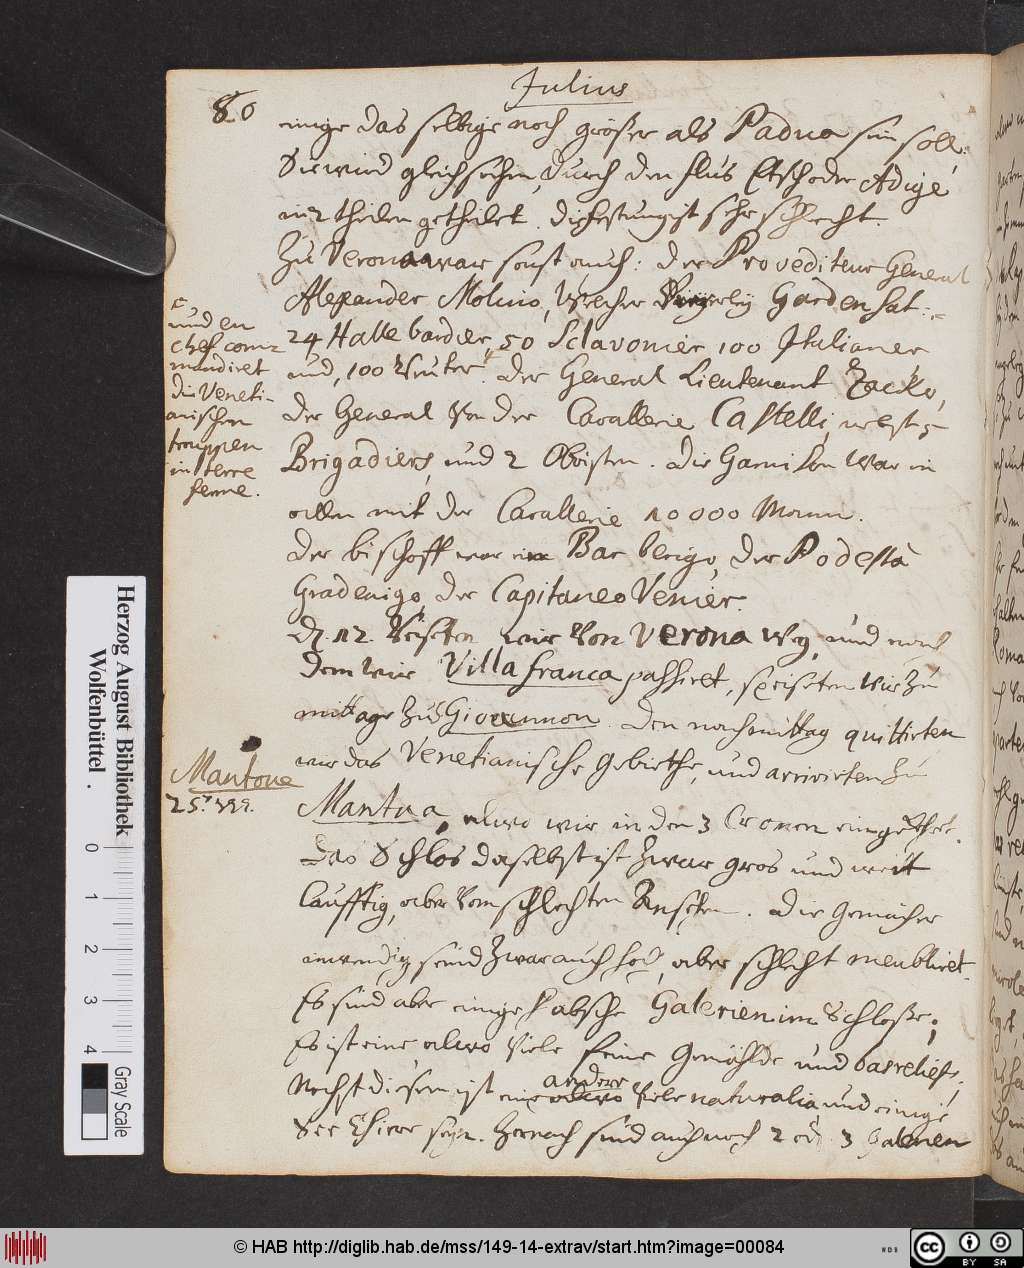 Julius
80
einige das selbige noch größer als Padua sein soll.
Sie wird gleichsahm, durch den flus Etsch oder Adige
in 2 theilen getheilet. die festung ist sehr schlecht.
Zu Verona war sonst auch: der Provediteur General
Alexander Molino, welcher Garden hat:
24 Hallebardier, 50 Sclavonier 100 Italianer
und, 100 Reuter. Der General Lieutenant
der General von der Cavallerie Castelli, nebst 5
Brigadiers, und 2 Obristen. Die Garnison war in
allen mit der Cavallerie 10000 Mann.
Der bischoff war ein Barbarigo, der Podestà
Gradenigo, der Capitaneo Venier.
D. 12. Reiseten wir von Verona weg, und nach
dem wir Villa franca passiret, speiseten wir zu
mittage zu Giovannon. Den nachmittag quittirten
wir das Venetianische Gebiethe, und arrivirten zu
Mantua, alwo wir in den 3 Cronen eingekehret.
Das Schlos daselbst ist zwar gros und weit
laufftig, aber von schlechten Ansehen. Die Gemächer
inwendig seind zwar auch hoch, aber schlecht meubliret.
Es sind aber einige habsche Galerien im Schloße;
Es ist eine, alwo viele feine Gemählde und basreliefs,
Nechst diesem ist eine andere alwo viele naturalia und einige
See Thiere seyn. Hernach sind auch noch 2 od. 3 Galerien
und en
chef com=
mandiret
die Veneti-
anischen
trouppen
in terre
ferme.
Mantoue
25.
Herzog August Bibliothek
Wolfenbüttel .
0
1
2
3
4
Gray Scale
© HAB http://diglib.hab.de/mss/149-14-extrav/start.htm?image=00084
cc
BY SA